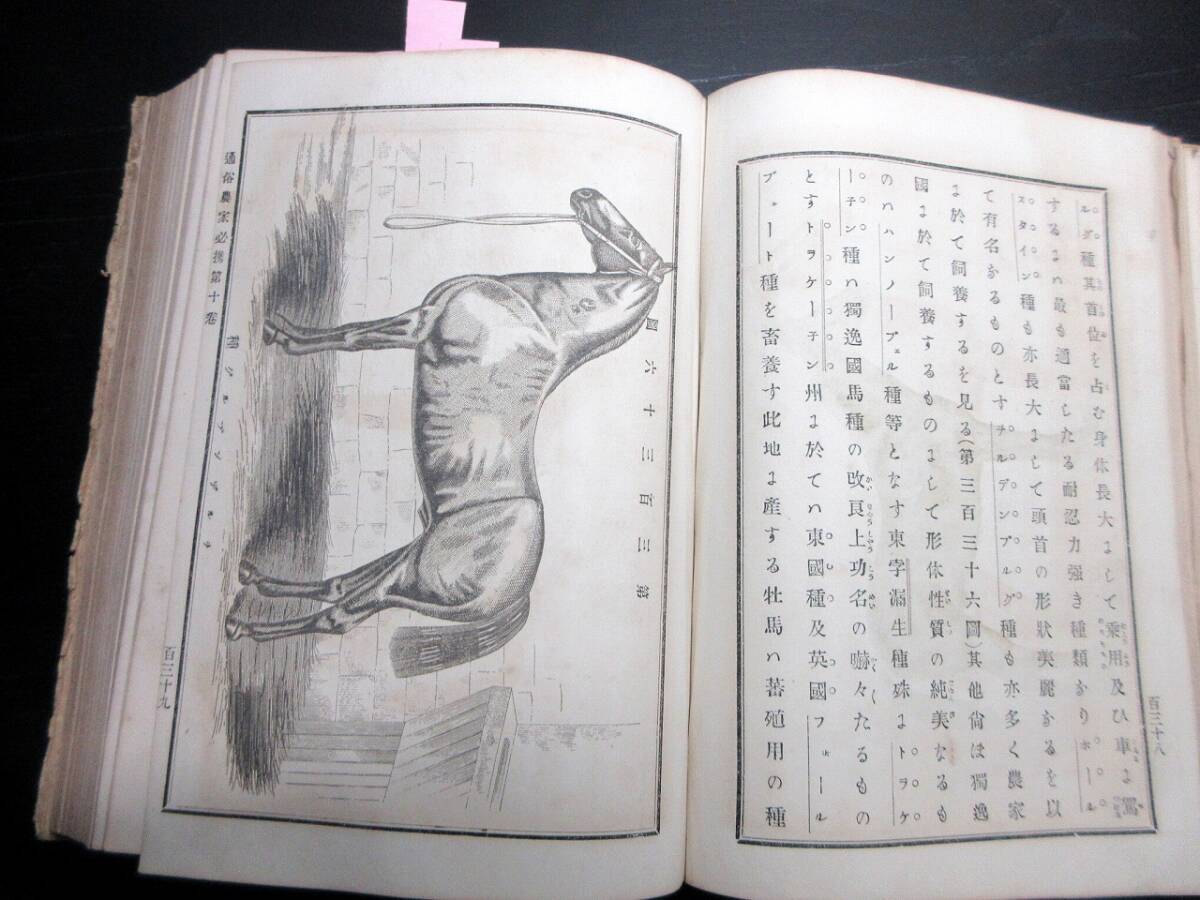 百三十八
ルグ種其首位を占む身体長大にして乗用及ひ車に駕
するには最も適當したる耐忍力強き種類なりホール
スタイン種も亦長大にして頭首の形狀美麗なるを以
て有名なるものとすヲルデンブルグ種も亦多く農家
に於て飼養するを見る(第三百三十六圖)其他尙ほ獨逸
國に於て飼養するものにして形体性質の純美なるも
のハハンノーブェル種等となす東孛漏生種殊にトラケ
ーチン種ハ獨逸國馬種の改良上功名の嚇々たるもの
とすトラケーチン州に於てハ東國種及英國フォールル
ブェート種を畜養す此地に產する牡馬ハ蕃殖用の種
第三百三十六圖
通俗農家必携第十卷
百三十九